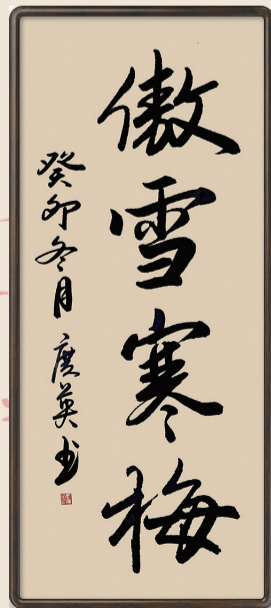 傲雪寒梅
癸卯冬月 广英书